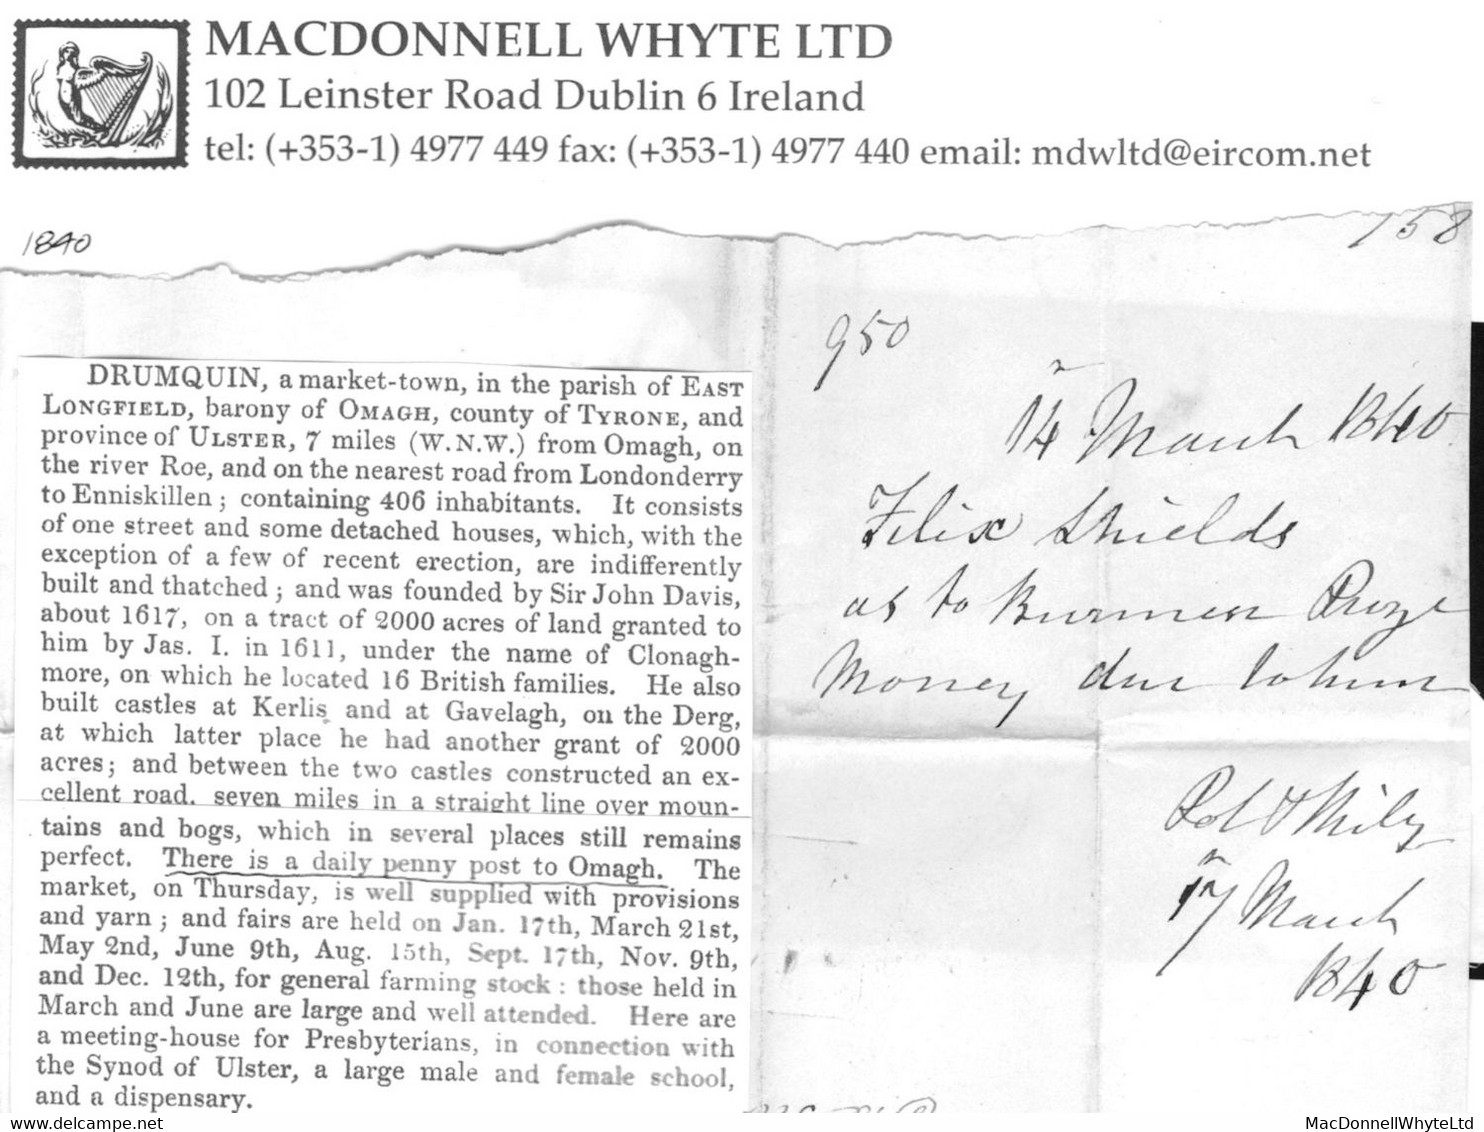 MACDONNELL WHYTE LTD
102 Leinster Road Dublin 6 Ireland
tel: (+353-1) 4977 449 fax: (+353-1) 4977 440 email: mdwltd@eircom.net
1840
DRUMQUIN, a market-town, in the parish of EAST
LONGFIELD, barony of OMAGH, county of TYRONE, and
province of ULSTER, 7 miles (W.N.W.) from Omagh, on
the river Roe, and on the nearest road from Londonderry
to Enniskillen; containing 406 inhabitants. It consists
of one street and some detached houses, which, with the
exception of a few of recent erection, are indifferently
built and thatched; and was founded by Sir John Davis,
about 1617, on a tract of 2000 acres of land granted to
him by Jas. I. in 1611, under the name of Clonagh-
more, on which he located 16 British families. He also
built castles at Kerlis and at Gavelagh, on the Derg,
at which latter place he had another grant of 2000
acres; and between the two castles constructed an ex-
cellent road, seven miles in a straight line over moun-
tains and bogs, which in several places still remains
perfect. There is a daily penny post to Omagh. The
market, on Thursday, is well supplied with provisions
and yarn; and fairs are held on Jan. 17th, March 21st,
May 2nd, June 9th, Aug. 15th, Sept. 17th, Nov. 9th,
and Dec. 12th, for general farming stock: those held in
March and June are large and well attended. Here are
a meeting-house for Presbyterians, in connection with
the Synod of Ulster, a large male and female school,
and a dispensary.
158
950
14 March 1840
Felix Shields
as to Burmese Prize
Money due to him
17 March
1840
www.delcampe.net
MacDonnellWhyteLtd